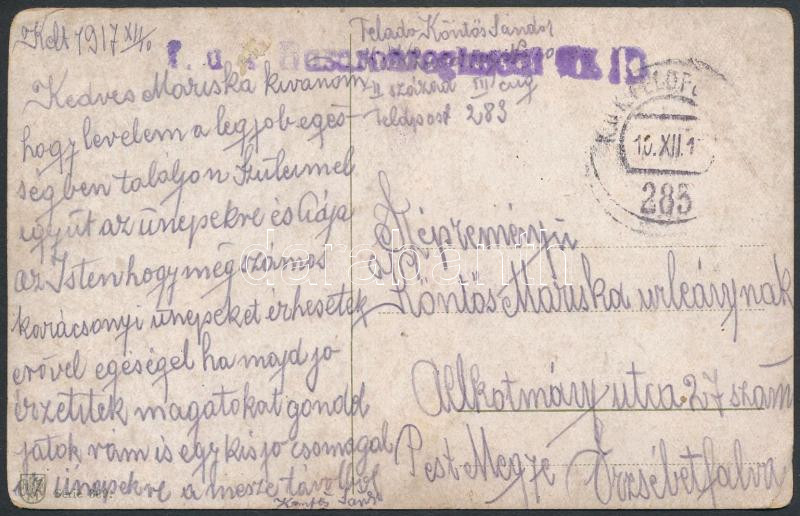 Kelt 1917 XII/10
Feladó Köntös Sándor
II század III cug
Feldpost 283
K.u.K. FELDPO
10.XII.1
283
Kedves Mariska kivánom
hogy levelem a legjob egés-
ségben találjon Szüleimel
együt az ünepekre és Adja
az Isten hogy még számos
karácsonyi ünepeket érhesetek
erővel egéségel ha majd jó
érzetitek magatokat gondol
jatok rám is egy kis jó csomagal
az ünepekre a mesze távolból
Köntös Sándor
Népreményü
Köntös Mariska urleánynak
Allkotmány utca 27 szám
Pest Megye Erzsébetfalva
darabanth